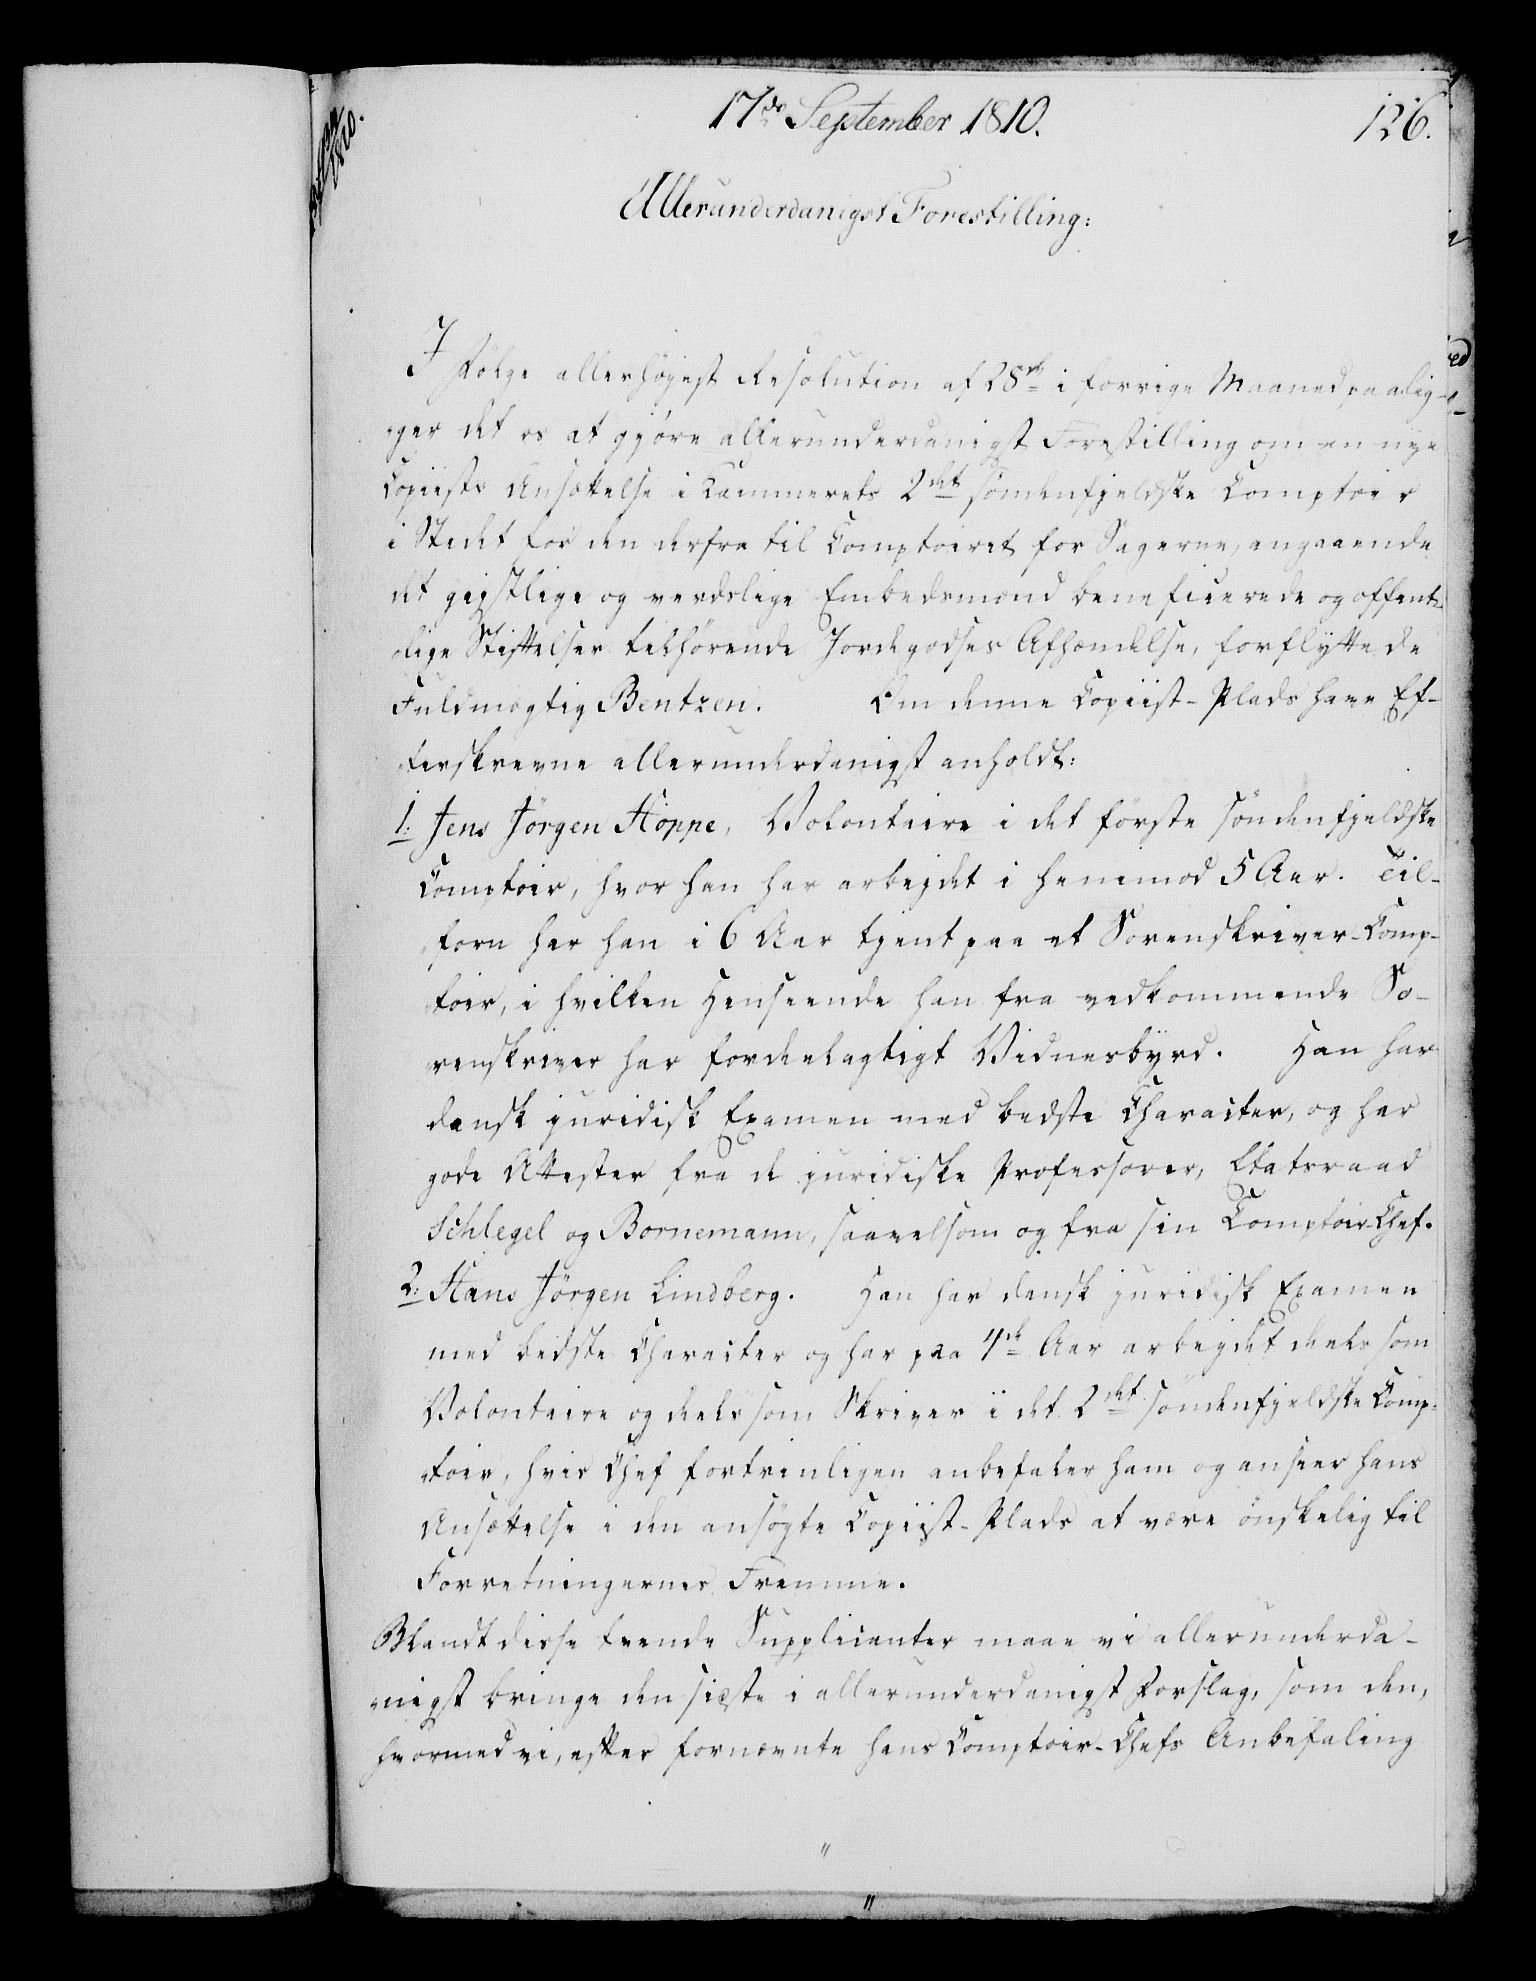 17de September 1810.
126.
Allerunderdanigst Forestilling:
I Følge allerhøyest Resolution af 28de i forrige Maaned paalig-
ger det os at gjøre allerunderdanigst Forestilling om en nye
Copiists Ansættelse i Kammerets 2det söndenfjeldske Comptoir
i Stedet for den derfra til Comptoiret for Sagerne, angaaende
det geistlige og verdslige Embedsmænd beneficerede og offent-
lige Stiftelser tilhörende Jordegodses Afhændelse, forflyttede
Fuldmægtig Bentzen. Om denne Copiist-Plads have Ef-
terskrevne allerunderdanigst anholdt:
1: Jens Jörgen Höppe, Volontaire i det förste söndenfjeldske
Comptoir, hvor han har arbejdet i henimod 5 Aar. Til-
forn har han i 6 Aar tjent paa et Sorenskriver-Comp-
toir, i hvilken Henseende han fra vedkommende So-
renskriver har fordeelagtigt Vidnesbyrd. Han har
dansk juridisk Examen med bedste Character, og har
gode Attester fra de juridiske Professorer, Etatsraad
Schlegel og Bornemann, saavelsom og fra sin Comptoir-Chef.
2: Hans Jörgen Lindberg. Han har dansk juridisk Examen
med bedste Character og har paa 4de Aar arbejdet deels som
Volontaire og deels som Skriver i det 2det söndenfjeldske Comp-
toir, hvis Chef fortrinligen anbefaler ham og anseer hans
Ansættelse i den ansögte Copiist-Plads at være önskelig til
Forretningernes Fremme.
Blandt disse tvende Supplicanter maae vi allerunderda-
nigst bringe den sidste i allerunderdanigst Forslag, som den,
hvormed vi, efter fornævnte hans Comptoir-Chefs Anbefaling